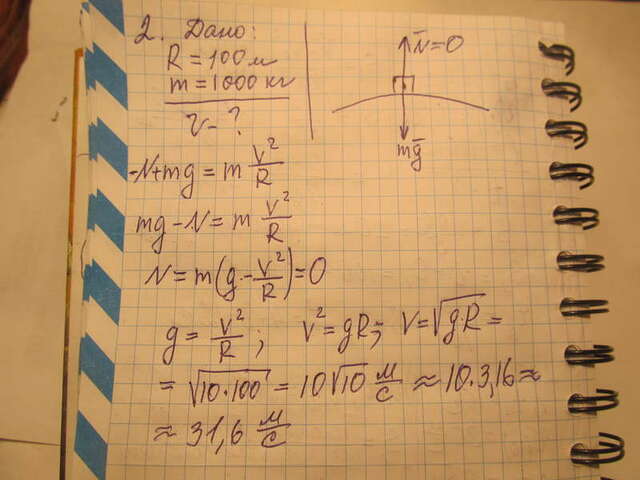 2. Дано:
R = 100 м
m = 1000 кг
V - ?
N̄ = 0
mḡ
-N+mg = m V²/R
mg - N = m V²/R
N = m(g - V²/R) = 0
g = V²/R ; V² = gR; V = √gR =
= √10·100 = 10√10 м/с ≈ 10·3,16 ≈
≈ 31,6 м/с